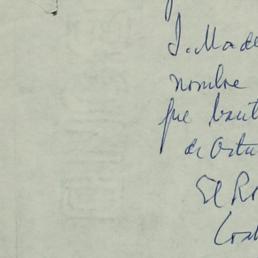 J. Made
nombre
fue baut
de Octu
El Ro